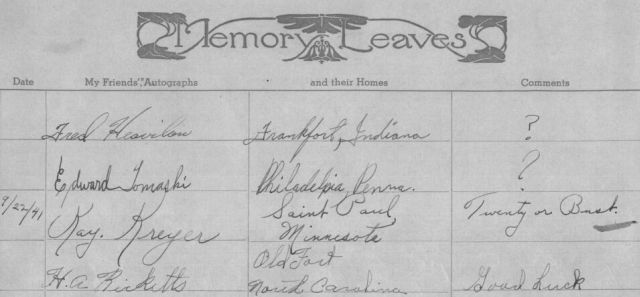 Memory Leaves
Date My Friends' Autographs and their Homes Comments
Fred Heavilon Frankfort, Indiana ?
Edward Tomaski Philadelpia, Penna. ?
9/22/41 Ray. Kreyer Saint Paul, Minnesota Twenty or Bust.
H. A. Ricketts Old Fort North Carolina Good Luck